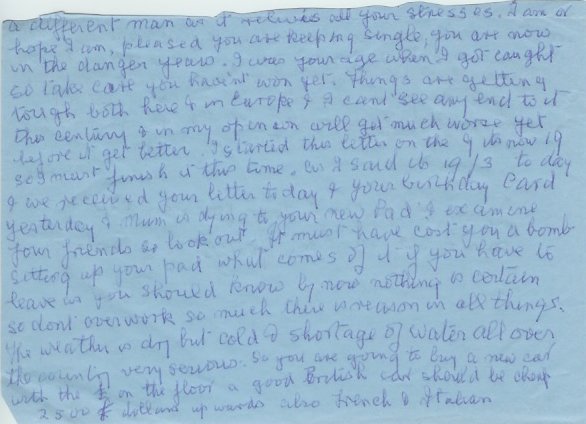 a different man as it relieves all your stresses. I am or
hope I am, pleased you are keeping single, you are now
in the danger years. I was your age when I got caught
so take care you have'nt won yet. Things are getting
tough both here & in Europe & I cant see any end to it
this century & in my opinion will get much worse yet
before it get better. I started this letter on the 9 its now 19
so I must finish it this time. as I said its 19/3 to day
& we received your letter today & your birthday Card
yesterday & Mum is dying to your new Pad & examine
your friends so look out. It must have cost you a bomb
setting up your pad what comes of it if you have to
leave as you should know by now nothing is certain
so dont overwork so much there is reason in all things.
The weather is dry but cold & shortage of water all over
the country very serious. So you are going to buy a new car
with the £ on the floor a good British car should be cheap
2500 dollars upwards also French & Italian